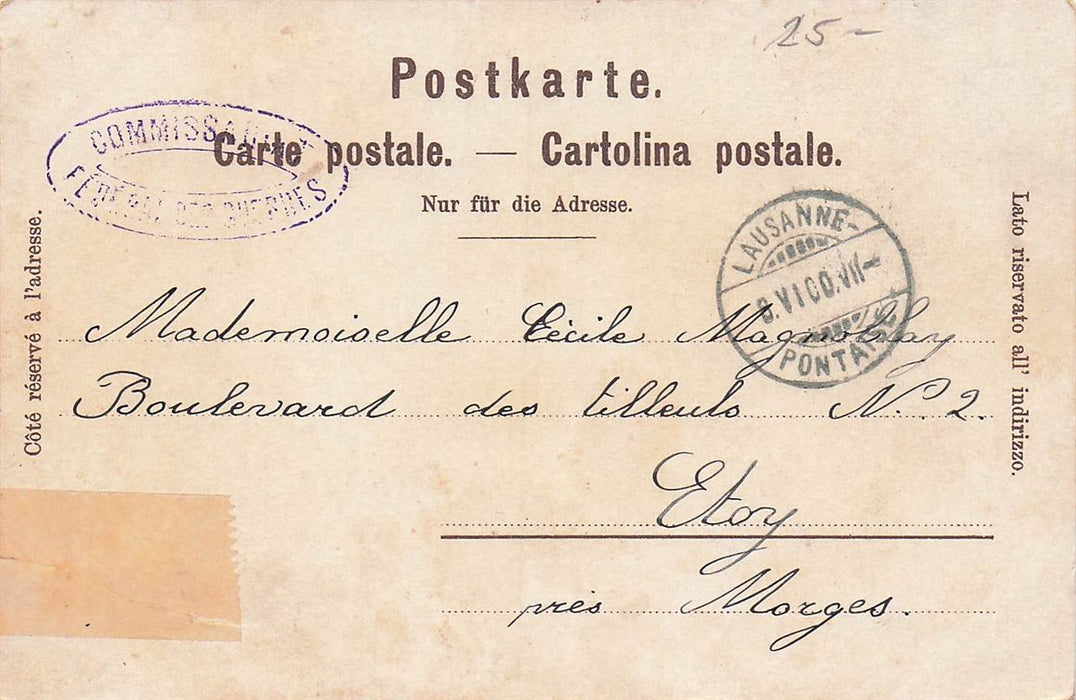 25-
Postkarte.
Carte postale. — Cartolina postale.
Nur für die Adresse.
COMMISSARIAT
FÉDÉRAL DES GUERRES
LAUSANNE-
VI 00. VII-
PONTAISE
Côté réservé à l'adresse.
Lato riservato all' indirizzo.
Mademoiselle Cécile Magnollay
Boulevard des tilleuls No. 2.
Etoy
près Morges.